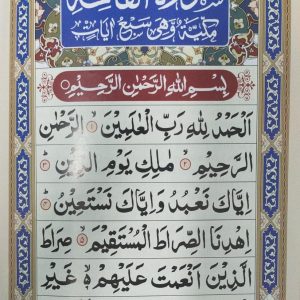 سورة الفاتحة
مكية وهي سبع ايات
بِسْمِ اللهِ الرَّحْمٰنِ الرَّحِيْمِ
اَلْحَمْدُ لِلّٰهِ رَبِّ الْعٰلَمِيْنَ ۙ﴿۱﴾ الرَّحْمٰنِ
الرَّحِيْمِ ۙ﴿۲﴾ مٰلِكِ يَوْمِ الدِّيْنِ ؕ﴿۳﴾
اِيَّاكَ نَعْبُدُ وَ اِيَّاكَ نَسْتَعِيْنُ ؕ﴿۴﴾
اِهْدِنَا الصِّرَاطَ الْمُسْتَقِيْمَ ۙ﴿۵﴾ صِرَاطَ
الَّذِيْنَ اَنْعَمْتَ عَلَيْهِمْ ۙ غَيْرِ